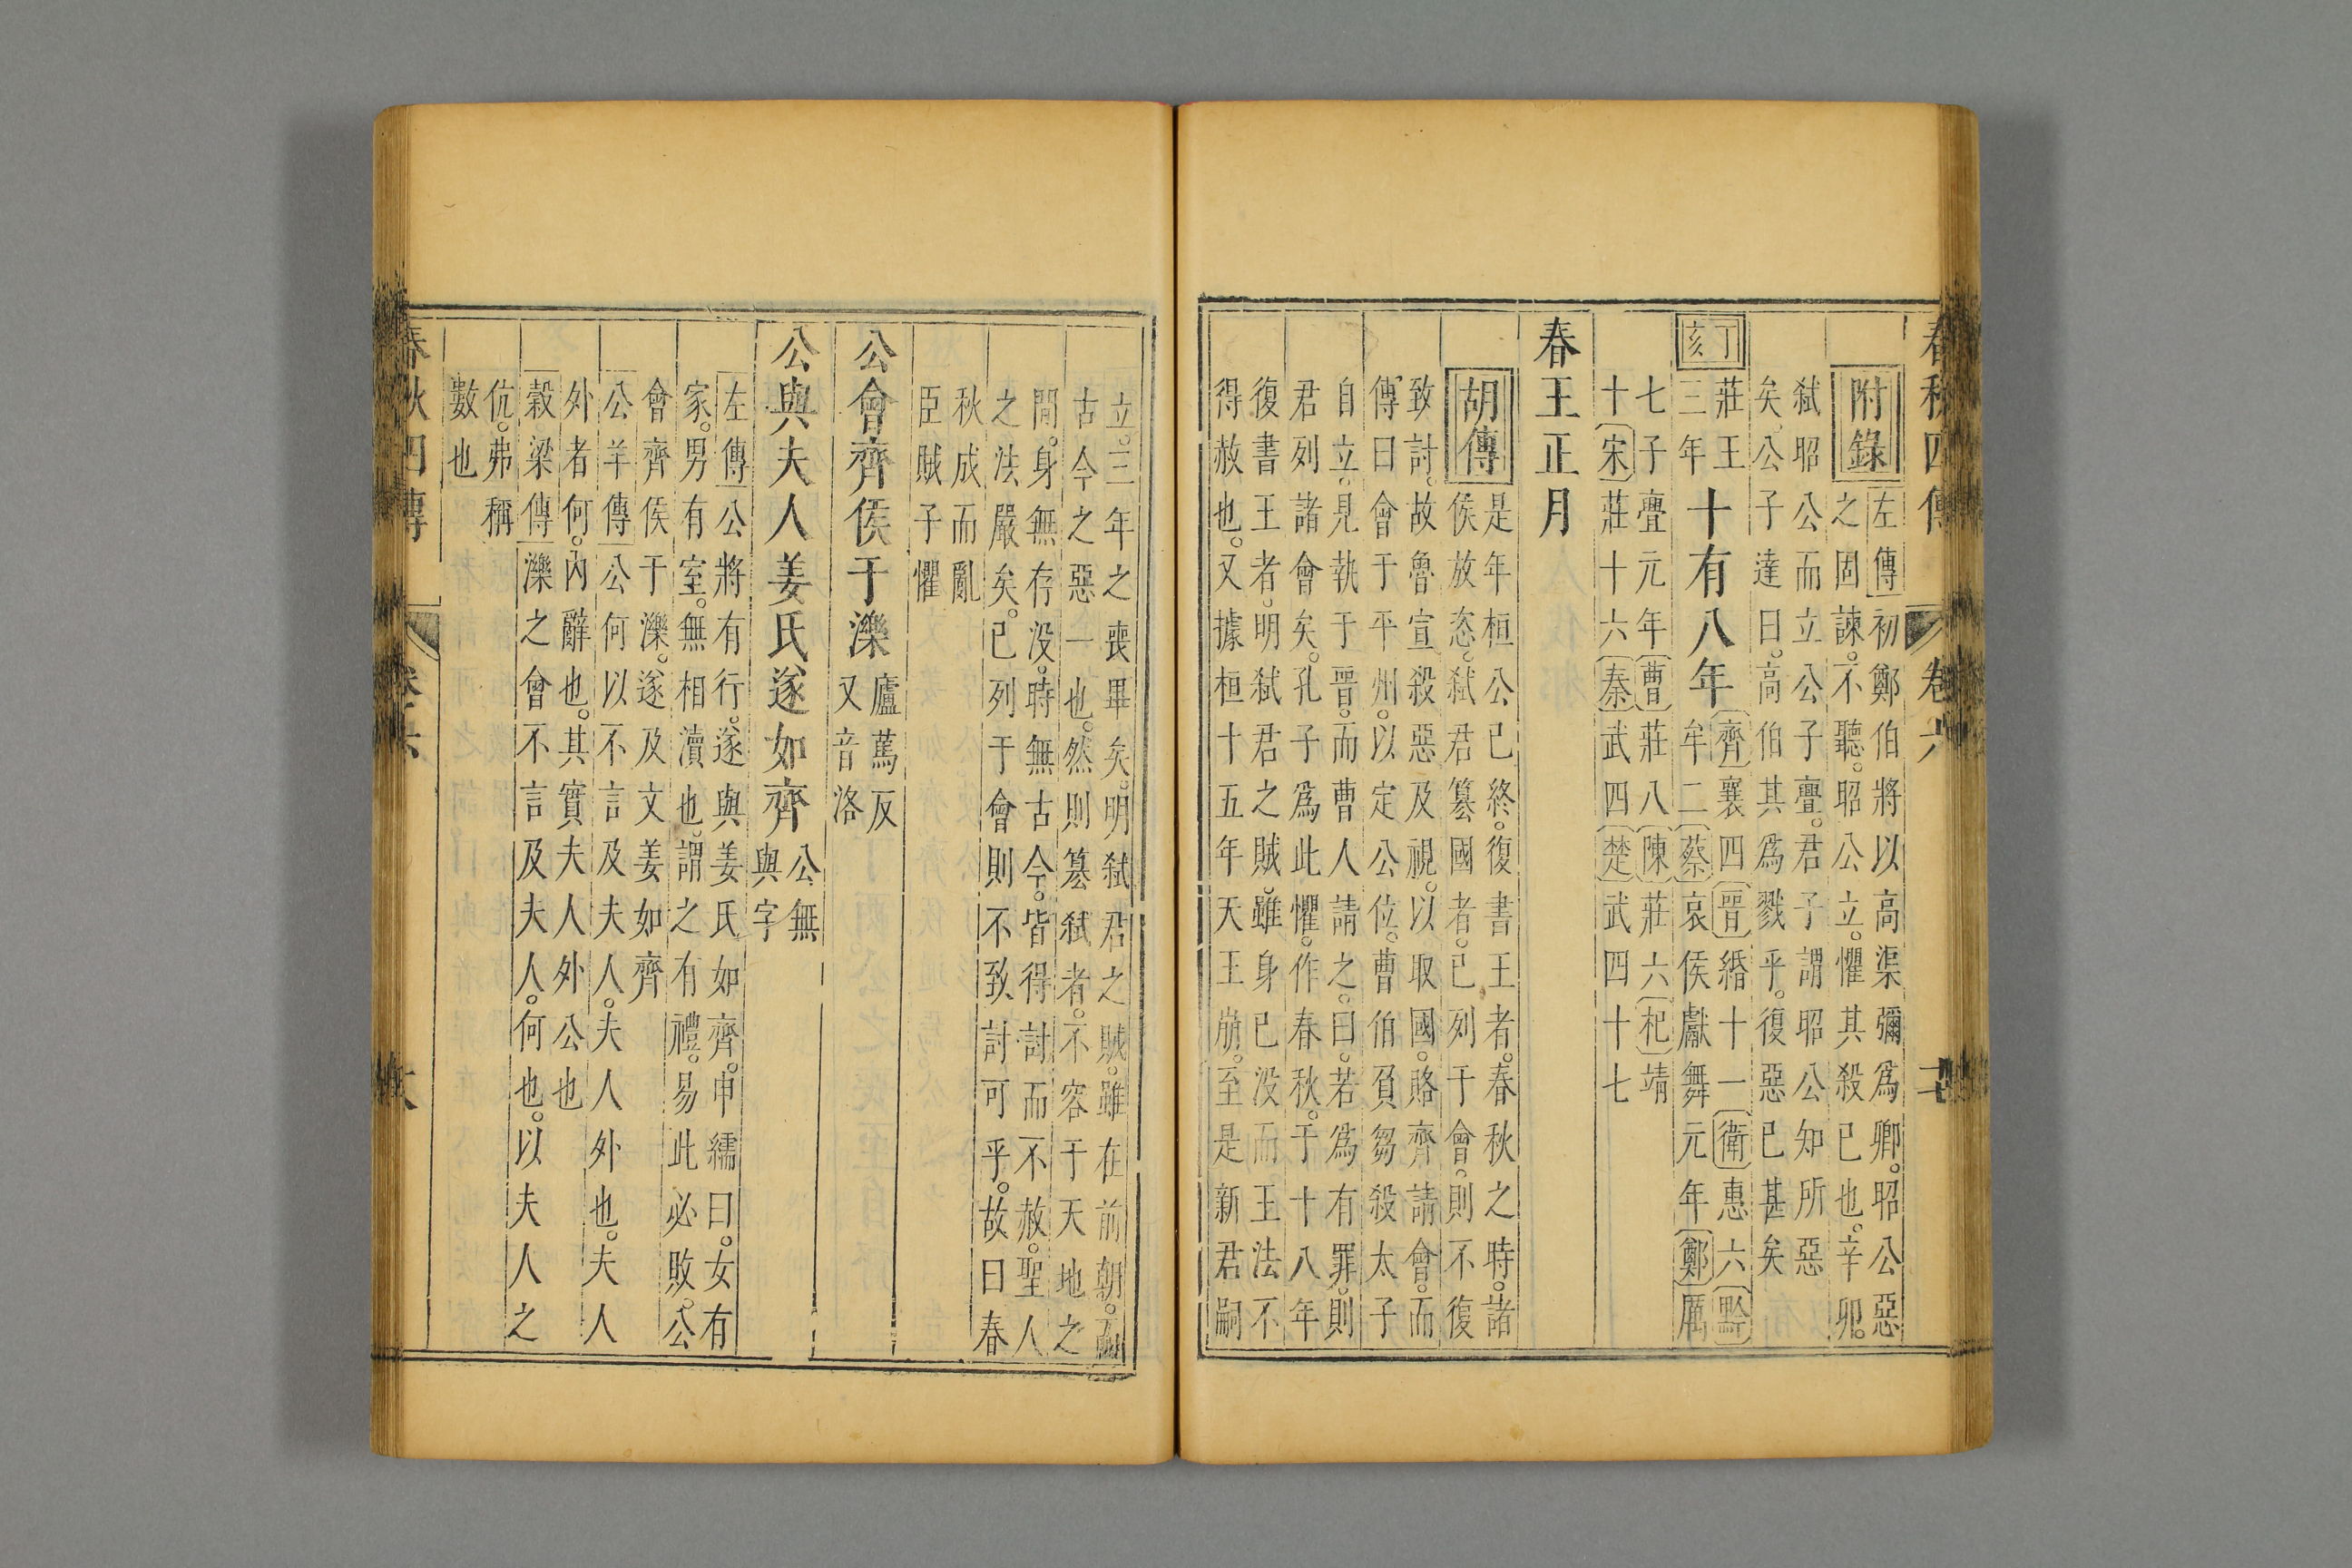 春秋四傳 卷六
附錄
左傳初鄭伯將以高渠彌爲卿。昭公惡
之固諫。不聽。昭公立。懼其殺已也。辛卯。
弑昭公而立公子亹。君子謂昭公知所惡
矣。公子達曰。高伯其爲戮乎。復惡已甚矣
丁亥
莊王
三年
十有八年
齊襄四晉緡十一衛惠六黔
牟二蔡哀侯獻舞元年鄭厲
七子亹元年曹莊八陳莊六杞靖
十宋莊十六秦武四楚武四十七
春王正月
胡傳
是年桓公已終。復書王者。春秋之時。諸
侯放恣。弑君篡國者。已列于會。則不復
致討。故魯宣殺惡及視。以取國。賂齊請會。而
傳曰會于平州。以定公位。曹伯負芻殺太子
自立。見執于晉。而曹人請之。曰。若爲有罪。則
君列諸會矣。孔子爲此懼。作春秋。于十八年
復書王者。明弑君之賊。雖身已没而王法不
得赦也。又據桓十五年天王崩。至是新君嗣
立。三年之喪畢矣。明弑君之賊。雖在前朝。而
古今之惡一也。然則篡弑者。不容于天地之
閒。身無存没。時無古今。皆得討而不赦。聖人
之法嚴矣。已列于會則不致討可乎。故曰春
秋成而亂
臣賊子懼
公會齊侯于濼
廬蔫反
又音洛
公與夫人姜氏遂如齊
公無
與字
左傳公將有行。遂與姜氏如齊。申繻曰。女有
家。男有室。無相瀆也。謂之有禮。易此必敗。公
會齊侯于濼。遂及文姜如齊
公羊傳公何以不言及夫人。夫人外也。夫人
外者何。內辭也。其實夫人外公也
穀梁傳濼之會不言及夫人。何也。以夫人之
伉。弗稱
數也
春秋四傳